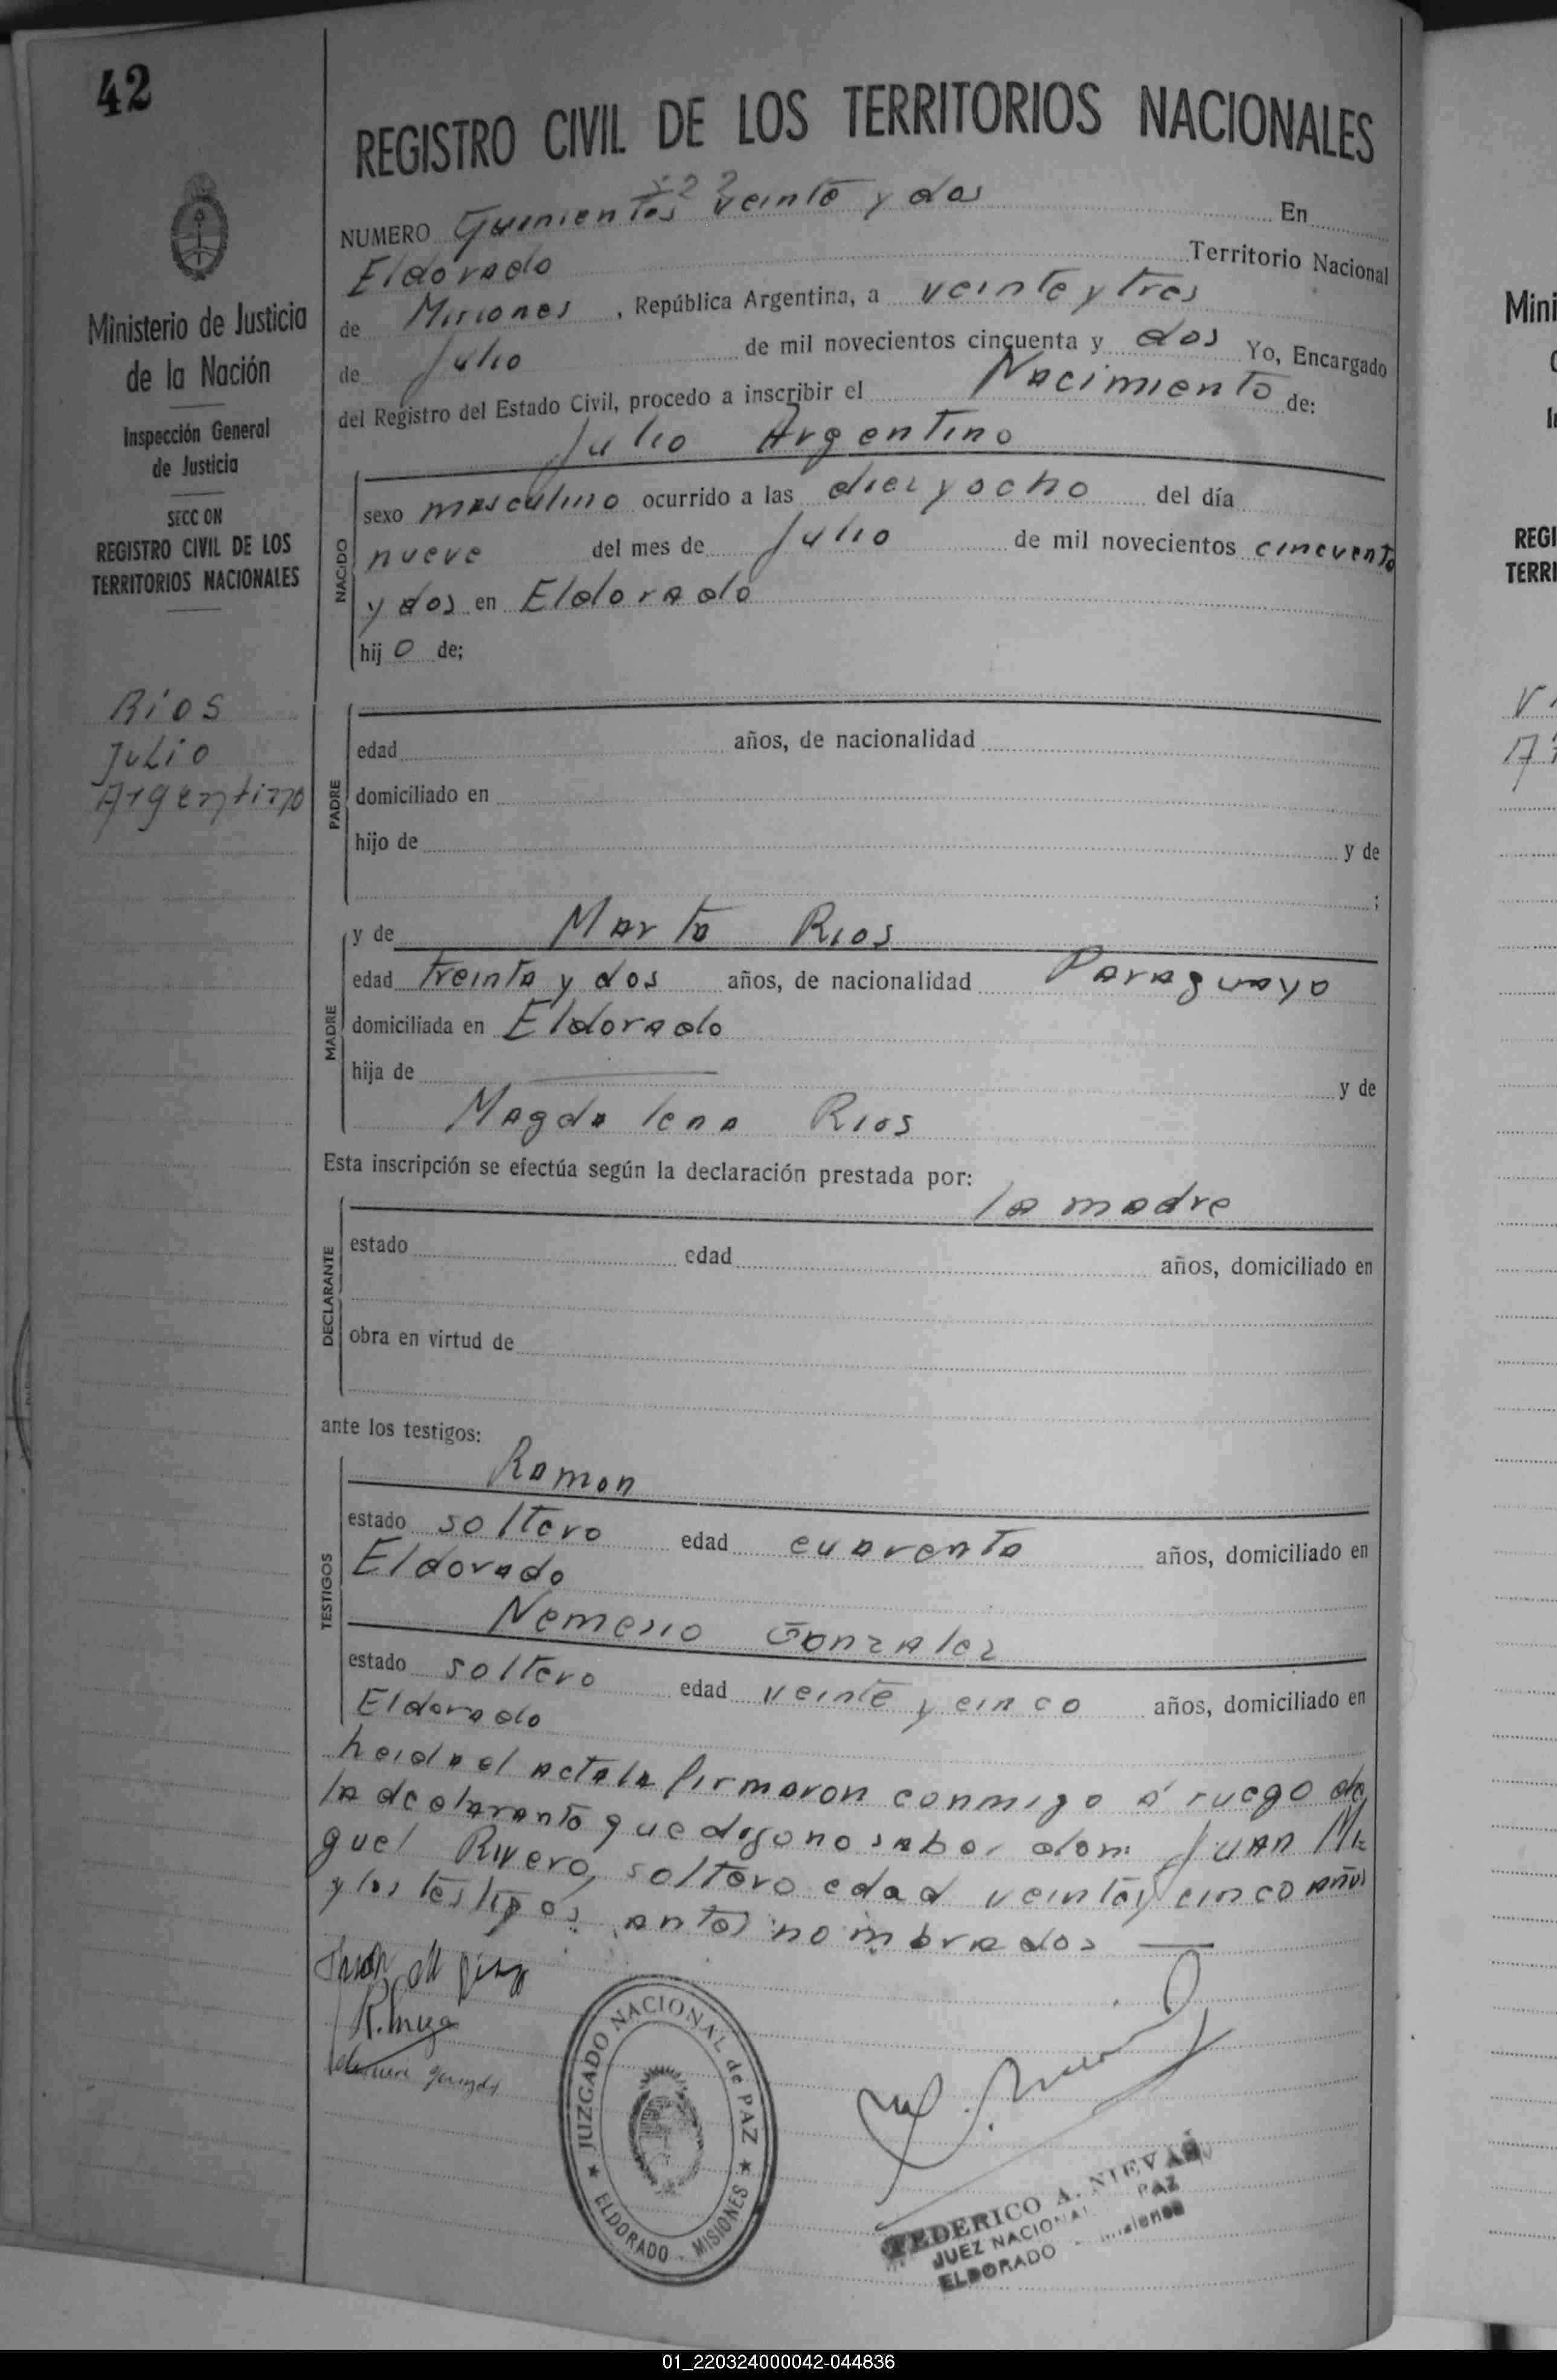 42
REGISTRO CIVIL DE LOS TERRITORIOS NACIONALES
522
NUMERO Quinientos veinte y dos En
Eldorado Territorio Nacional
de Misiones, República Argentina, a veinte y tres
de Julio de mil novecientos cincuenta y dos Yo, Encargado
del Registro del Estado Civil, procedo a inscribir el Nacimiento de:
Julio Argentino
NACIDO
sexo masculino ocurrido a las diez y ocho del día
nueve del mes de Julio de mil novecientos cincuenta
y dos en Eldorado
hijo de;
Ministerio de Justicia
de la Nación
Inspección General
de Justicia
SECC ON
REGISTRO CIVIL DE LOS
TERRITORIOS NACIONALES
Rios
Julio
Argentino
PADRE
edad años, de nacionalidad
domiciliado en
hijo de y de
;
MADRE
y de Marta Rios
edad treinta y dos años, de nacionalidad Paraguaya
domiciliada en Eldorado
hija de y de
Magdalena Rios
Esta inscripción se efectúa según la declaración prestada por:
la madre
DECLARANTE
estado edad años, domiciliado en
obra en virtud de
ante los testigos:
TESTIGOS
Ramon
estado soltero edad cuarenta años, domiciliado en
Eldorado
Nemesio Gonzalez
estado soltero edad veinte y cinco años, domiciliado en
Eldorado
Leida el acta la firmaron conmigo á ruego de
la declarante que dijo no saber don: Juan Mi
guel Rivero, soltero edad veinte y cinco años
y los testigos antes nombrados
JUZGADO NACIONAL de PAZ
ELDORADO - MISIONES
FEDERICO A. NIEVAS
JUEZ NACIONAL PAZ
ELDORADO - Misiones
Mini
REGI
TERRI
01_220324000042-044836